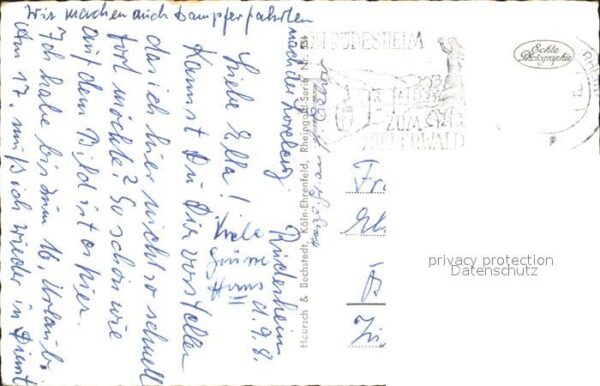 Wir machen auch Dampferfahrten
nach der Loreley
Rüdesheim
d. 9. 8.
Liebe Ella!
Kannst Du Dir vorstellen
das ich hier nicht so schnell
fort möchte? So schön wie
auf dem Bild ist es hier.
Ich habe bis zum 16. Urlaub.
Am 17. muß ich wieder in Dienst
Viele
Grüsse
Hans!!
Heursch & Dechstedt, Köln-Ehrenfeld, Rheingold-Serie Nr.
RÜDESHEIM
ZUM
NIEDERWALD
Echte
Photographie
Fr
privacy protection
Datenschutz